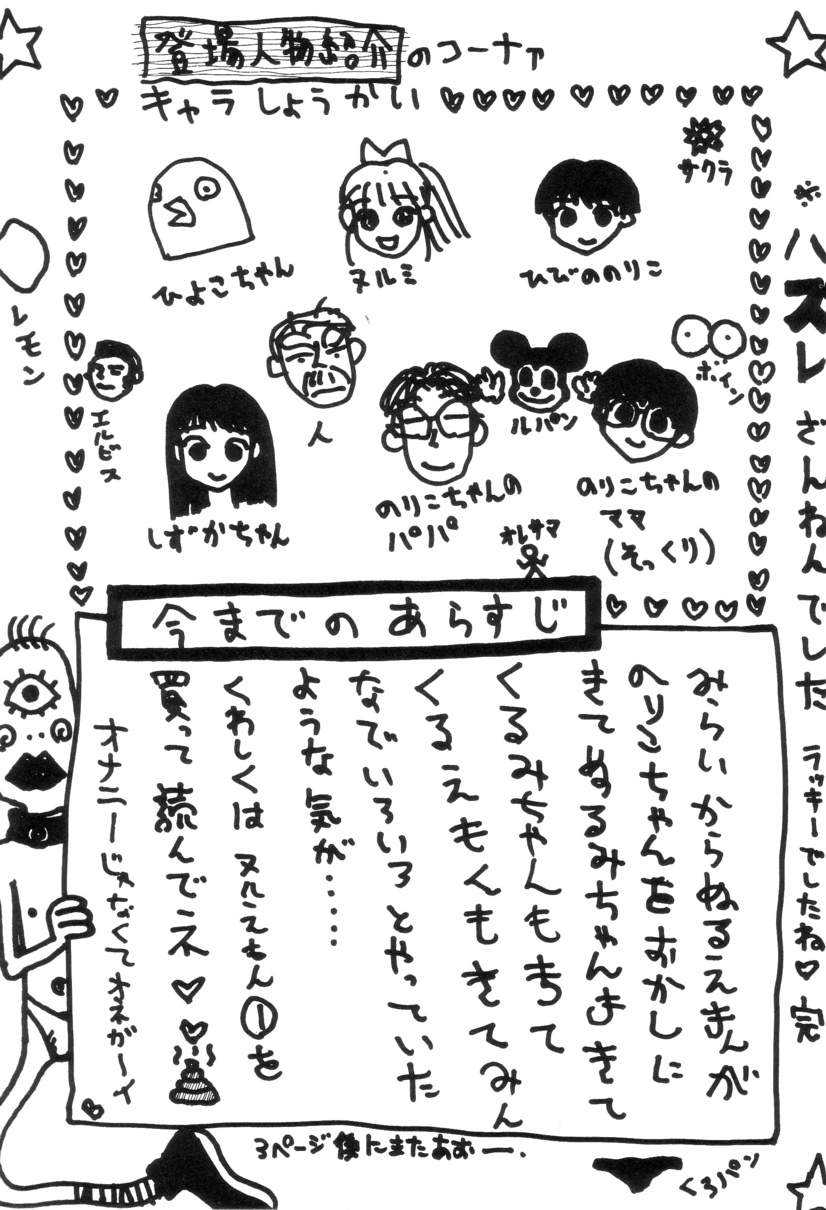 登場人物紹介のコーナァ
キャラしょうかい
サクラ
ひよこちゃん
ヌルミ
ひびののりこ
レモン
エルビス
人
ルパン
ボイン
しずかちゃん
のりこちゃんの
パパ
のりこちゃんの
ママ
(そっくり)
オレサマ
※ハズレ ざんねんでした ラッキーでしたね♡ 完
今までのあらすじ
みらいからぬるえもんが
のりこちゃんをおかしに
きてぬるみちゃんもきて
くるみちゃんもきて
くるえもんもきてみん
なでいろいろとやっていた
ような気が・・・・
くわしくはヌルえもん①を
買って読んでネ♡♡
オナニーじゃなくてオネガーイ
3ページ後にまたあおー.
くろパン